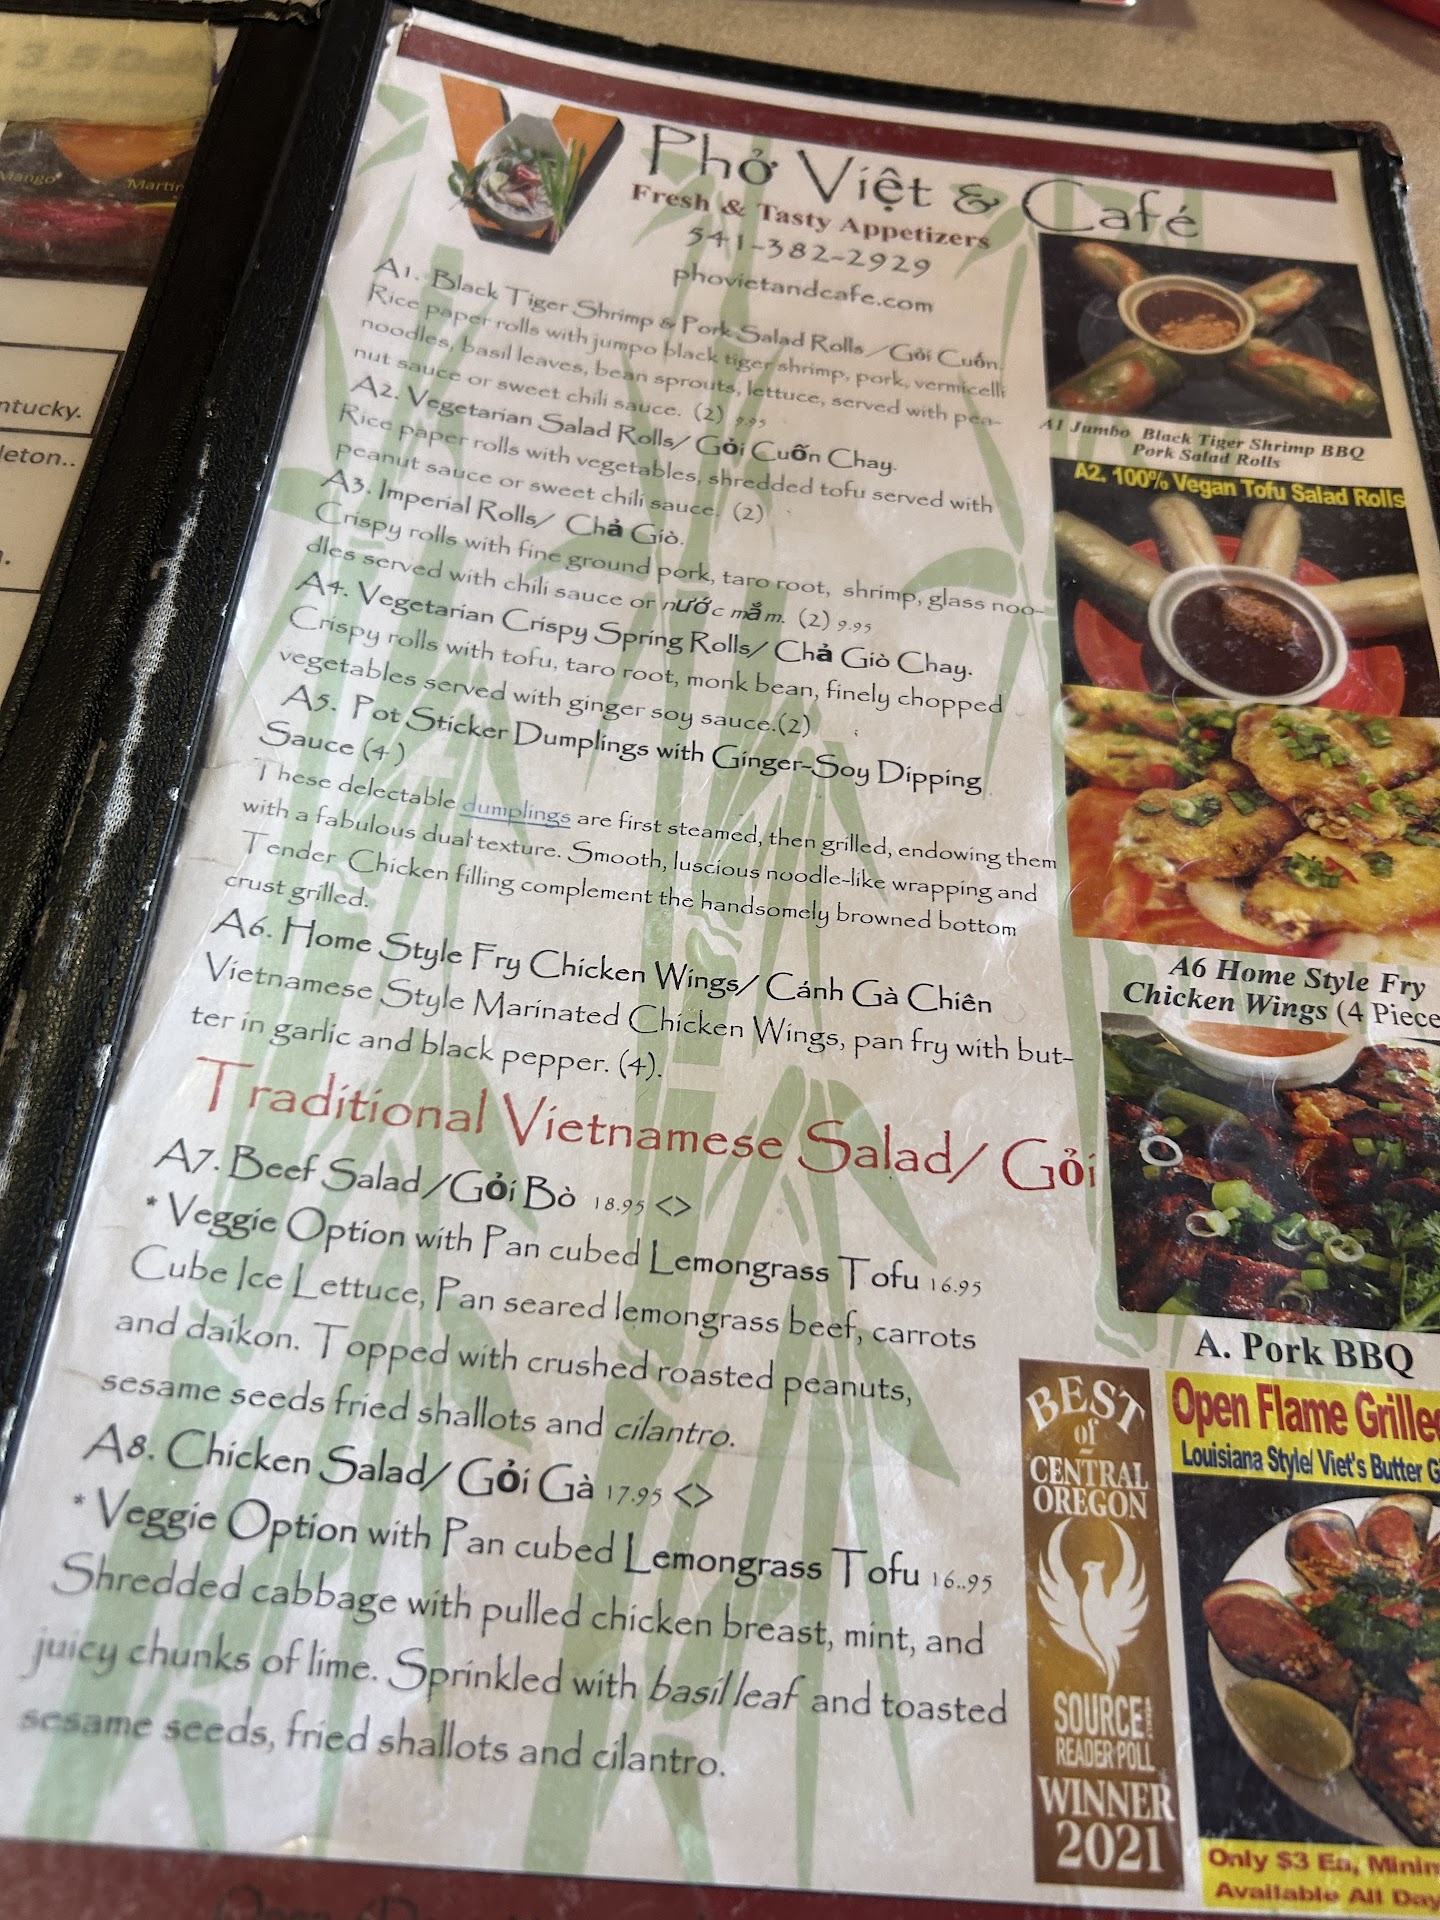 Mango
Martin
ntucky.
leton..
Phở Việt & Café
Fresh & Tasty Appetizers
541-382-2929
phovietandcafe.com
A1. Black Tiger Shrimp & Pork Salad Rolls /Gỏi Cuốn.
Rice paper rolls with jumpo black tiger shrimp, pork, vermicelli
noodles, basil leaves, bean sprouts, lettuce, served with pea-
nut sauce or sweet chili sauce. (2) 9.95
A2. Vegetarian Salad Rolls/ Gỏi Cuốn Chay.
Rice paper rolls with vegetables, shredded tofu served with
peanut sauce or sweet chili sauce. (2)
A3. Imperial Rolls/ Chả Giò.
Crispy rolls with fine ground pork, taro root, shrimp, glass noo-
dles served with chili sauce or nước mắm. (2) 9.95
A4. Vegetarian Crispy Spring Rolls/ Chả Giò Chay.
Crispy rolls with tofu, taro root, monk bean, finely chopped
vegetables served with ginger soy sauce.(2)
A5. Pot Sticker Dumplings with Ginger-Soy Dipping
Sauce (4)
These delectable dumplings are first steamed, then grilled, endowing them
with a fabulous dual texture. Smooth, luscious noodle-like wrapping and
Tender Chicken filling complement the handsomely browned bottom
crust grilled.
A6. Home Style Fry Chicken Wings/ Cánh Gà Chiên
Vietnamese Style Marinated Chicken Wings, pan fry with but-
ter in garlic and black pepper. (4).
Traditional Vietnamese Salad/ Gỏi
A7. Beef Salad /Gỏi Bò 18.95 <>
* Veggie Option with Pan cubed Lemongrass Tofu 16.95
Cube Ice Lettuce, Pan seared lemongrass beef, carrots
and daikon. Topped with crushed roasted peanuts,
sesame seeds fried shallots and cilantro.
A8. Chicken Salad/ Gỏi Gà 17.95 <>
* Veggie Option with Pan cubed Lemongrass Tofu 16..95
Shredded cabbage with pulled chicken breast, mint, and
juicy chunks of lime. Sprinkled with basil leaf and toasted
sesame seeds, fried shallots and cilantro.
A1 Jumbo Black Tiger Shrimp BBQ
Pork Salad Rolls
A2. 100% Vegan Tofu Salad Rolls
A6 Home Style Fry
Chicken Wings (4 Piece
A. Pork BBQ
BEST
of
CENTRAL
OREGON
SOURCE
READER POLL
WINNER
2021
Open Flame Grilled
Louisiana Style/ Viet's Butter G
Only $3 Ea, Minim
Available All Day